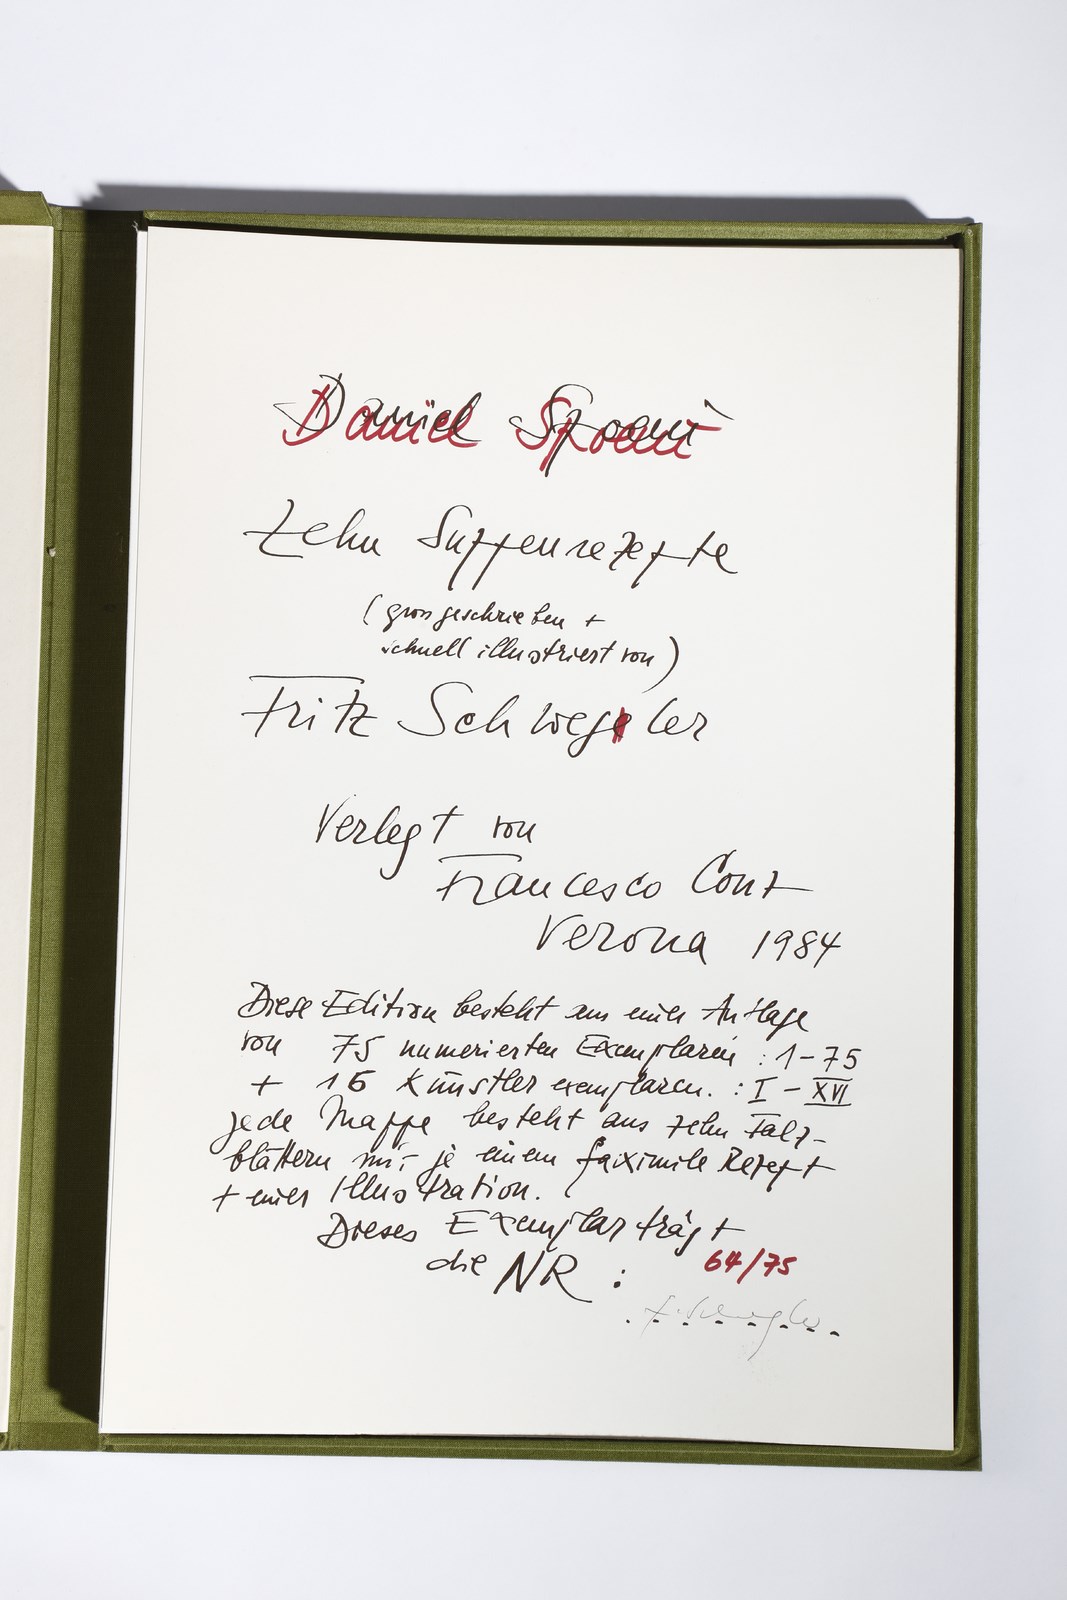 Daniel Spoerri
Zehn Suppenrezepte
(grossgeschrieben +
schnell illustriert von)
Fritz Schwegler
Verlegt von
Francesco Conz
Verona 1984
Diese Edition besteht aus einer Auflage
von 75 numerierten Exemplaren : 1-75
+ 16 Künstlerexemplaren. : I - XVI
jede Mappe besteht aus zehn Falz-
blättern mit je einem faximile Rezept
+ einer Illustration.
Dieses Exemplar trägt
die NR :
64/75
F. Schwegler